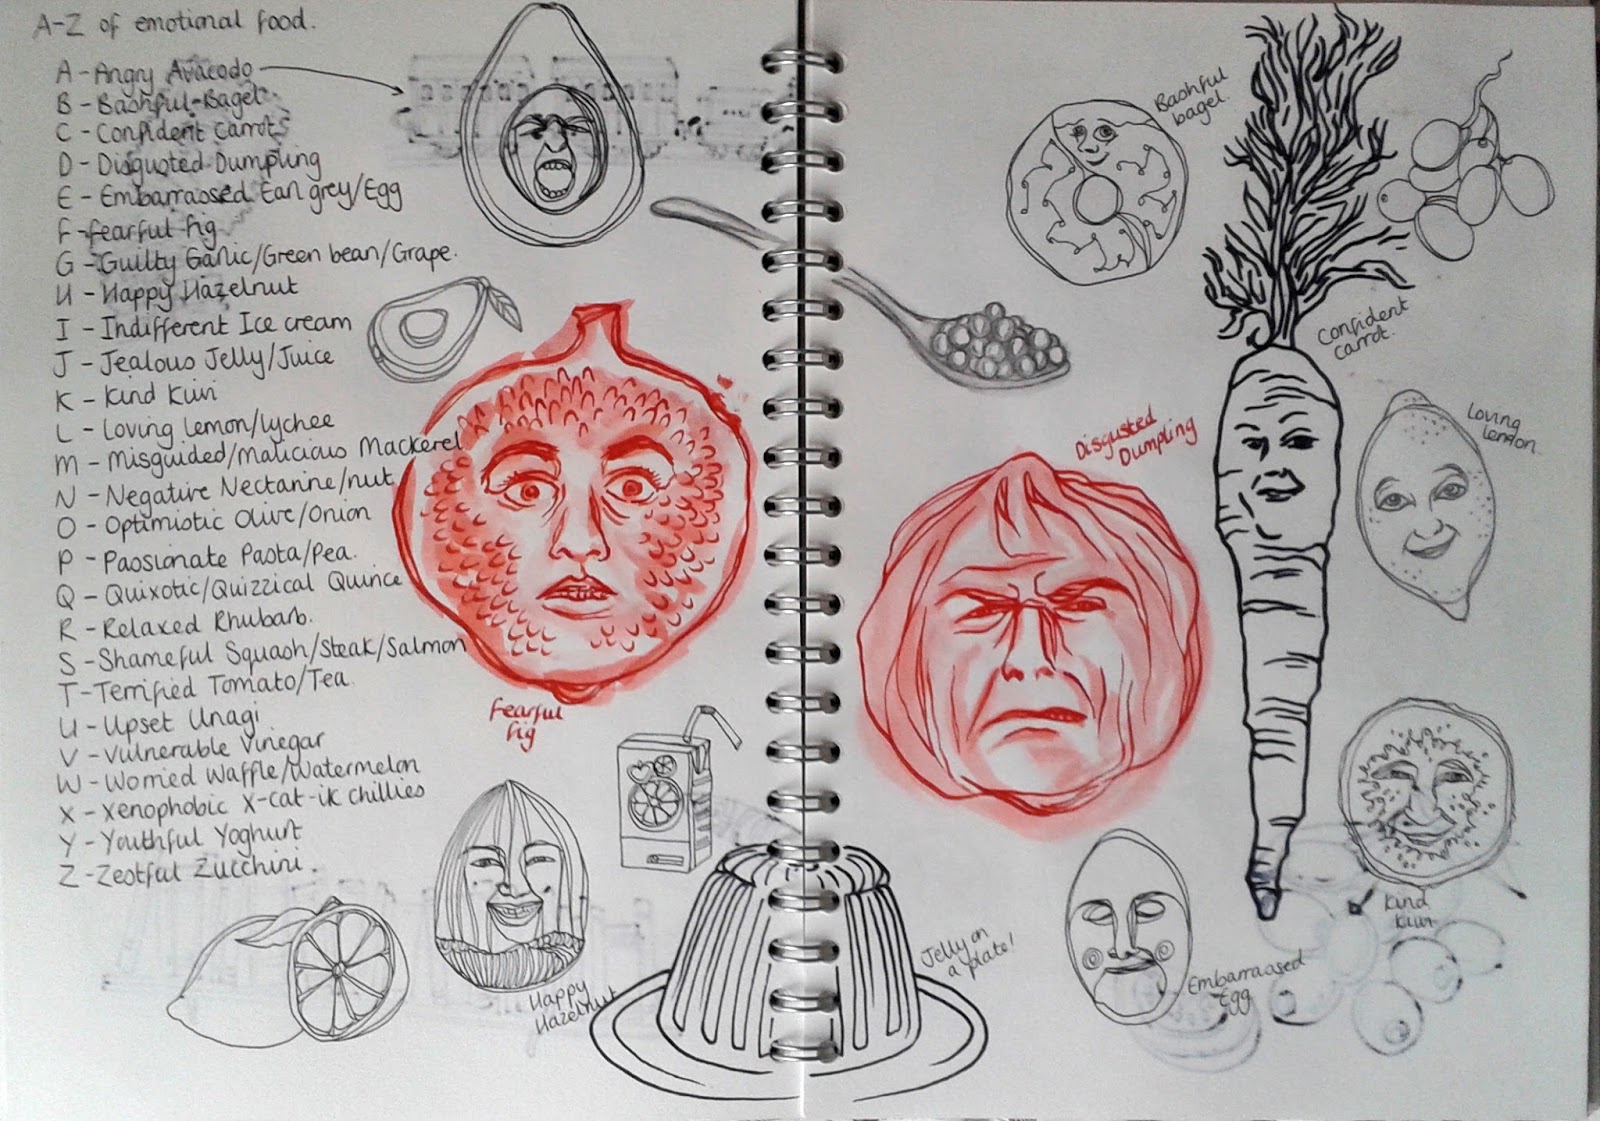 A-Z of emotional food.
A - Angry Avacodo
B - Bashful Bagel
C - Confident Carrots
D - Disgusted Dumpling
E - Embarrassed Earl grey/Egg
F - fearful fig
G - Guilty Garlic/Green bean/Grape.
H - Happy Hazelnut
I - Indifferent Ice cream
J - Jealous Jelly/Juice
K - Kind Kiwi
L - Loving lemon/lychee
M - Misguided/Malicious Mackerel
N - Negative Nectarine/nut
O - Optimistic Olive/Onion
P - Passionate Pasta/Pea.
Q - Quixotic/Quizzical Quince
R - Relaxed Rhubarb.
S - Shameful Squash/Steak/Salmon
T - Terrified Tomato/Tea
U - Upset Unagi
V - Vulnerable Vinegar
W - Worried Waffle/Watermelon
X - Xenophobic X-cat-ik chillies
Y - Youthful Yoghurt
Z - Zestful Zucchini.
Fearful
fig
Happy
Hazelnut
Bashful
bagel.
Confident
carrot.
Loving
lemon.
Disgusted
Dumpling
Kind
Kiwi
Jelly on
a plate!
Embarrassed
Egg